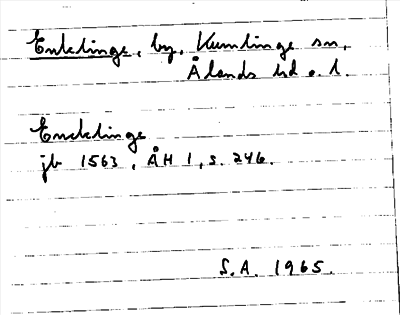 Enklinge, by, Kumlinge sn,
Ålands hd o. l.
Encklinge
jb 1563, ÅH 1, s. 246.
S.A. 1965.